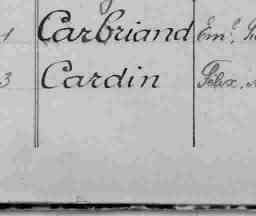 1 Carbriand Em.
3 Cardin Felix.